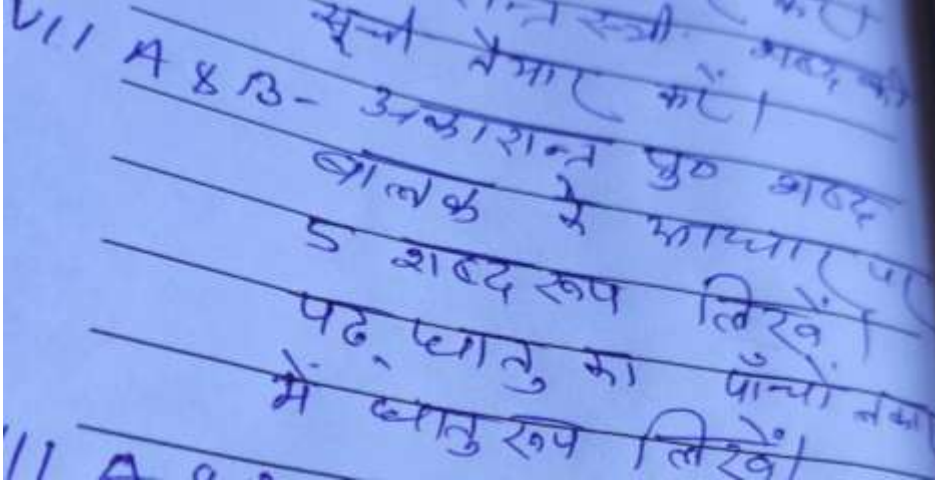 शब्द की
सूची तैयार करें।
VII A & B- अकारान्त पु० शब्द
बालक के आधार पर
5 शब्द रूप लिखें।
पठ् धातु का पाँचों
में धातु रूप लिखें।